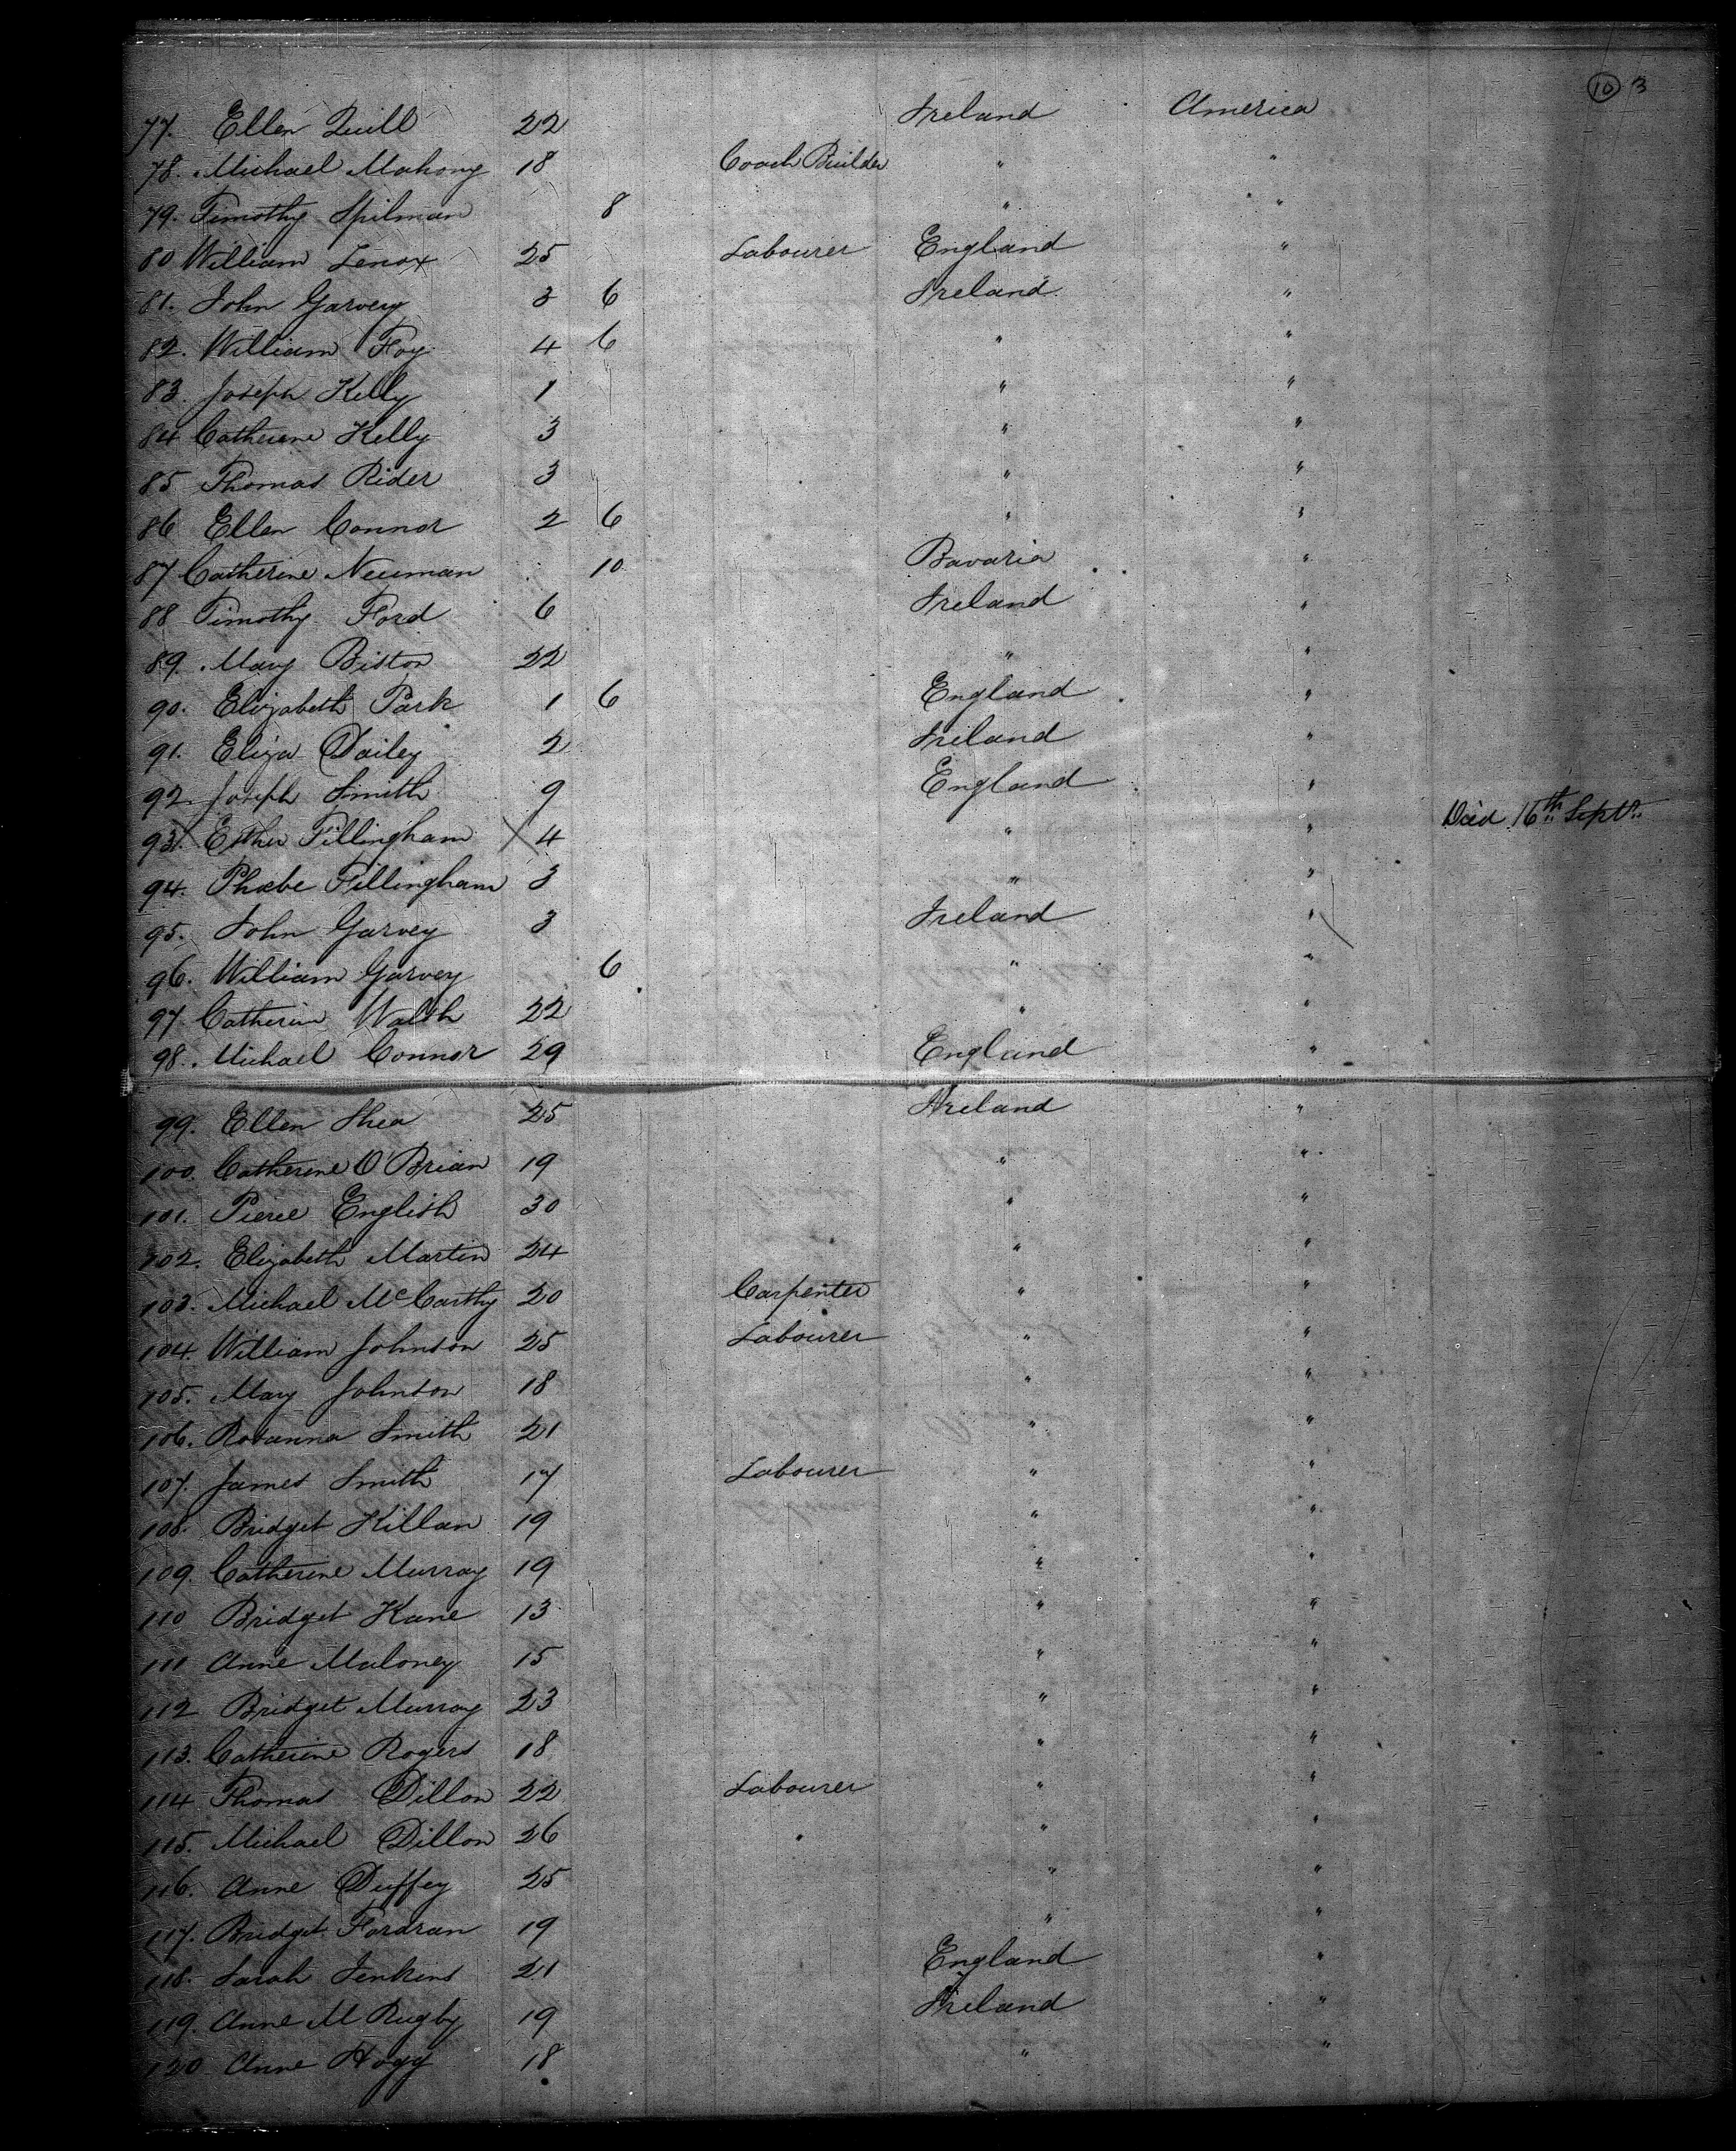 10 3
77. Ellen Quill 22 Ireland America
78. Michael Mahony 18 Coach Builder " "
79. Timothy Spilman 8 " "
80 William Lenox 25 Labourer England "
81. John Garvey 3 6 Ireland "
82. William Foy 4 6 " "
83. Joseph Kelly 1 " "
84 Catherine Kelly 3 " "
85 Thomas Rider 3 " "
86 Ellen Connor 2 6 " "
87 Catherine Neuman 10 Bavaria "
88 Timothy Ford 6 Ireland "
89. Mary Biston 22 " "
90. Elizabeth Park 1 6 England "
91. Eliza Dailey 2 Ireland "
92. Joseph Smith 9 England "
93. Esther Fillingham X 4 " " Died 16th Septr
94. Phœbe Fillingham 3 " "
95. John Garvey 3 Ireland "
96. William Garvey 6 " "
97 Catherine Walsh 22 " "
98. Michael Connor 29 England "
99. Ellen Shea 25 Ireland "
100. Catherine O'Brian 19 " "
101. Pierce English 30 " "
102. Elizabeth Martin 24 " "
103. Michael McCarthy 20 Carpenter " "
104. William Johnson 25 Labourer " "
105. Mary Johnson 18 " "
106. Rosanna Smith 21 " "
107. James Smith 17 Labourer " "
108. Bridget Killan 19 " "
109. Catherine Murray 19 " "
110 Bridget Kane 13 " "
111 Anne Maloney 15 " "
112 Bridget Murray 23 " "
113. Catherine Rogers 18 " "
114 Thomas Dillon 22 Labourer " "
115. Michael Dillon 26 " "
116. Anne Duffey 25 " "
117. Bridget Fordran 19 " "
118. Sarah Jenkins 21 England "
119. Anne M Rugby 19 Ireland "
120 Anne Hogg 18 " "